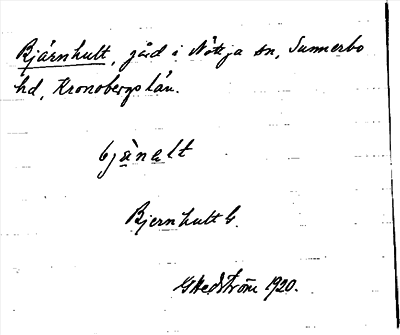 Bjärnhult, gård i Nöttja sn, Sunnerbo
hd, Kronobergs län.
bjänalt
Bjernhult G.
G Hedström 1920.